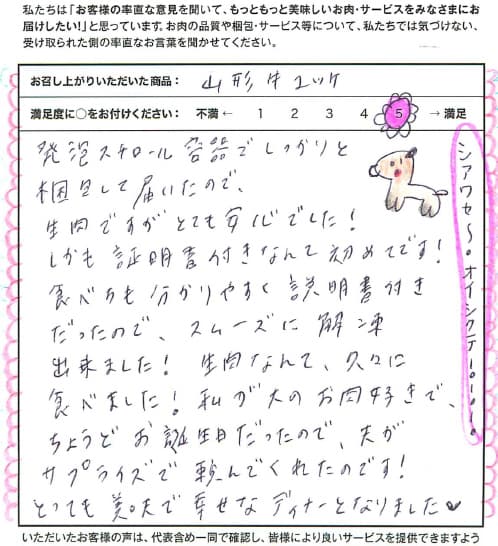 私たちは「お客様の率直な意見を聞いて、もっともっと美味しいお肉・サービスをみなさまにお
届けしたい!」と思っています。お肉の品質や梱包・サービス等について、私たちでは気づけない、
受け取られた側の率直なお言葉を聞かせてください。
お召し上がりいただいた商品： 山形牛ユッケ
満足度に○をお付けください： 不満 ← 1 2 3 4 5 → 満足
発泡スチロール容器でしっかりと
梱包して届いたので、
生肉ですがとても安心でした！
しかも証明書付きなんて初めてです！
食べ方も分かりやすく説明書付き
だったので、スムーズに解凍
出来ました！ 生肉なんて、久々に
食べました！私が大のお肉好きで、
ちょうどお誕生日だったので、夫が
サプライズで頼んでくれたのです！
とっても美味で幸せなディナーとなりました♥
シアワセ〜。オイシクテ！。！。！。
いただいたお客様の声は、代表含め一同で確認し、皆様により良いサービスを提供できますよう